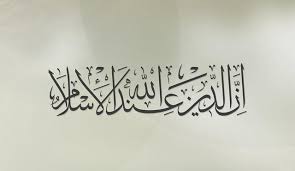 اِنَّ الدِّينَ عِنْدَ اللهِ الْاِسْلَامُ